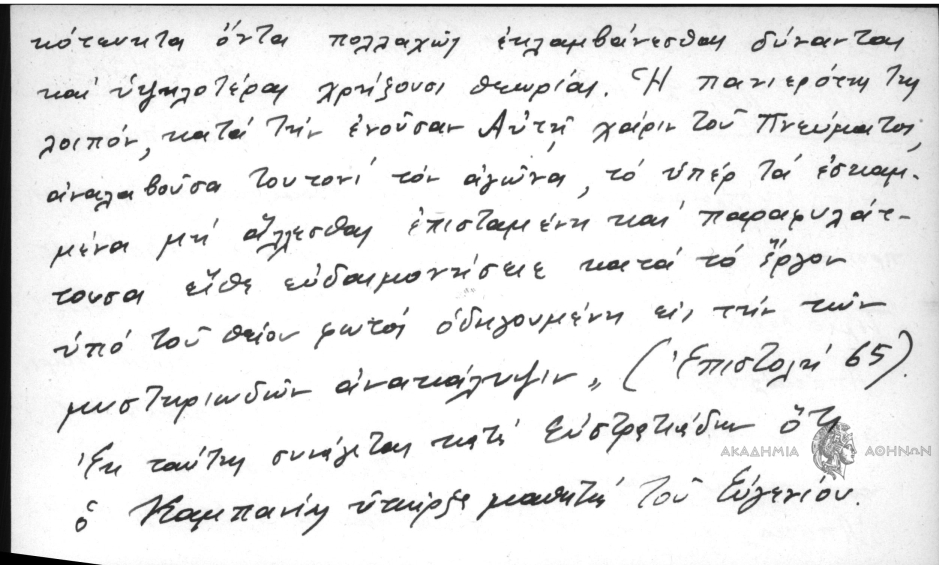 κότευκτα ὄντα πολλαχῶς ἐκλαμβάνεσθαι δύνανται
καί ὑψηλοτέρας χρήζουσι θεωρίας. Ἡ πανιερότης της
λοιπόν, κατά τήν ἐνοῦσαν Αὐτῇ χάριν τοῦ Πνεύματος,
ἀναλαβοῦσα τουτονί τόν ἀγῶνα, τό ὑπέρ τά ἐσκαμ-
μένα μή ἅλλεσθαι ἐπισταμένη καί παραφυλάτ-
τουσα εἴθε εὐδαιμονήσειε κατά τό ἔργον
ὑπό τοῦ θείου φωτός ὁδηγουμένη εἰς τήν τῶν
μυστηριωδῶν ἀνακάλυψιν„ (Ἐπιστολή 65).
Ἐκ ταύτης συνάγεται κατ' Εὐστρατιάδην ὅτι
ὁ Καμπανίας ὑπῆρξε μαθητής τοῦ Εὐγενίου.
ΑΚΑΔΗΜΙΑ ΑΘΗΝΩΝ